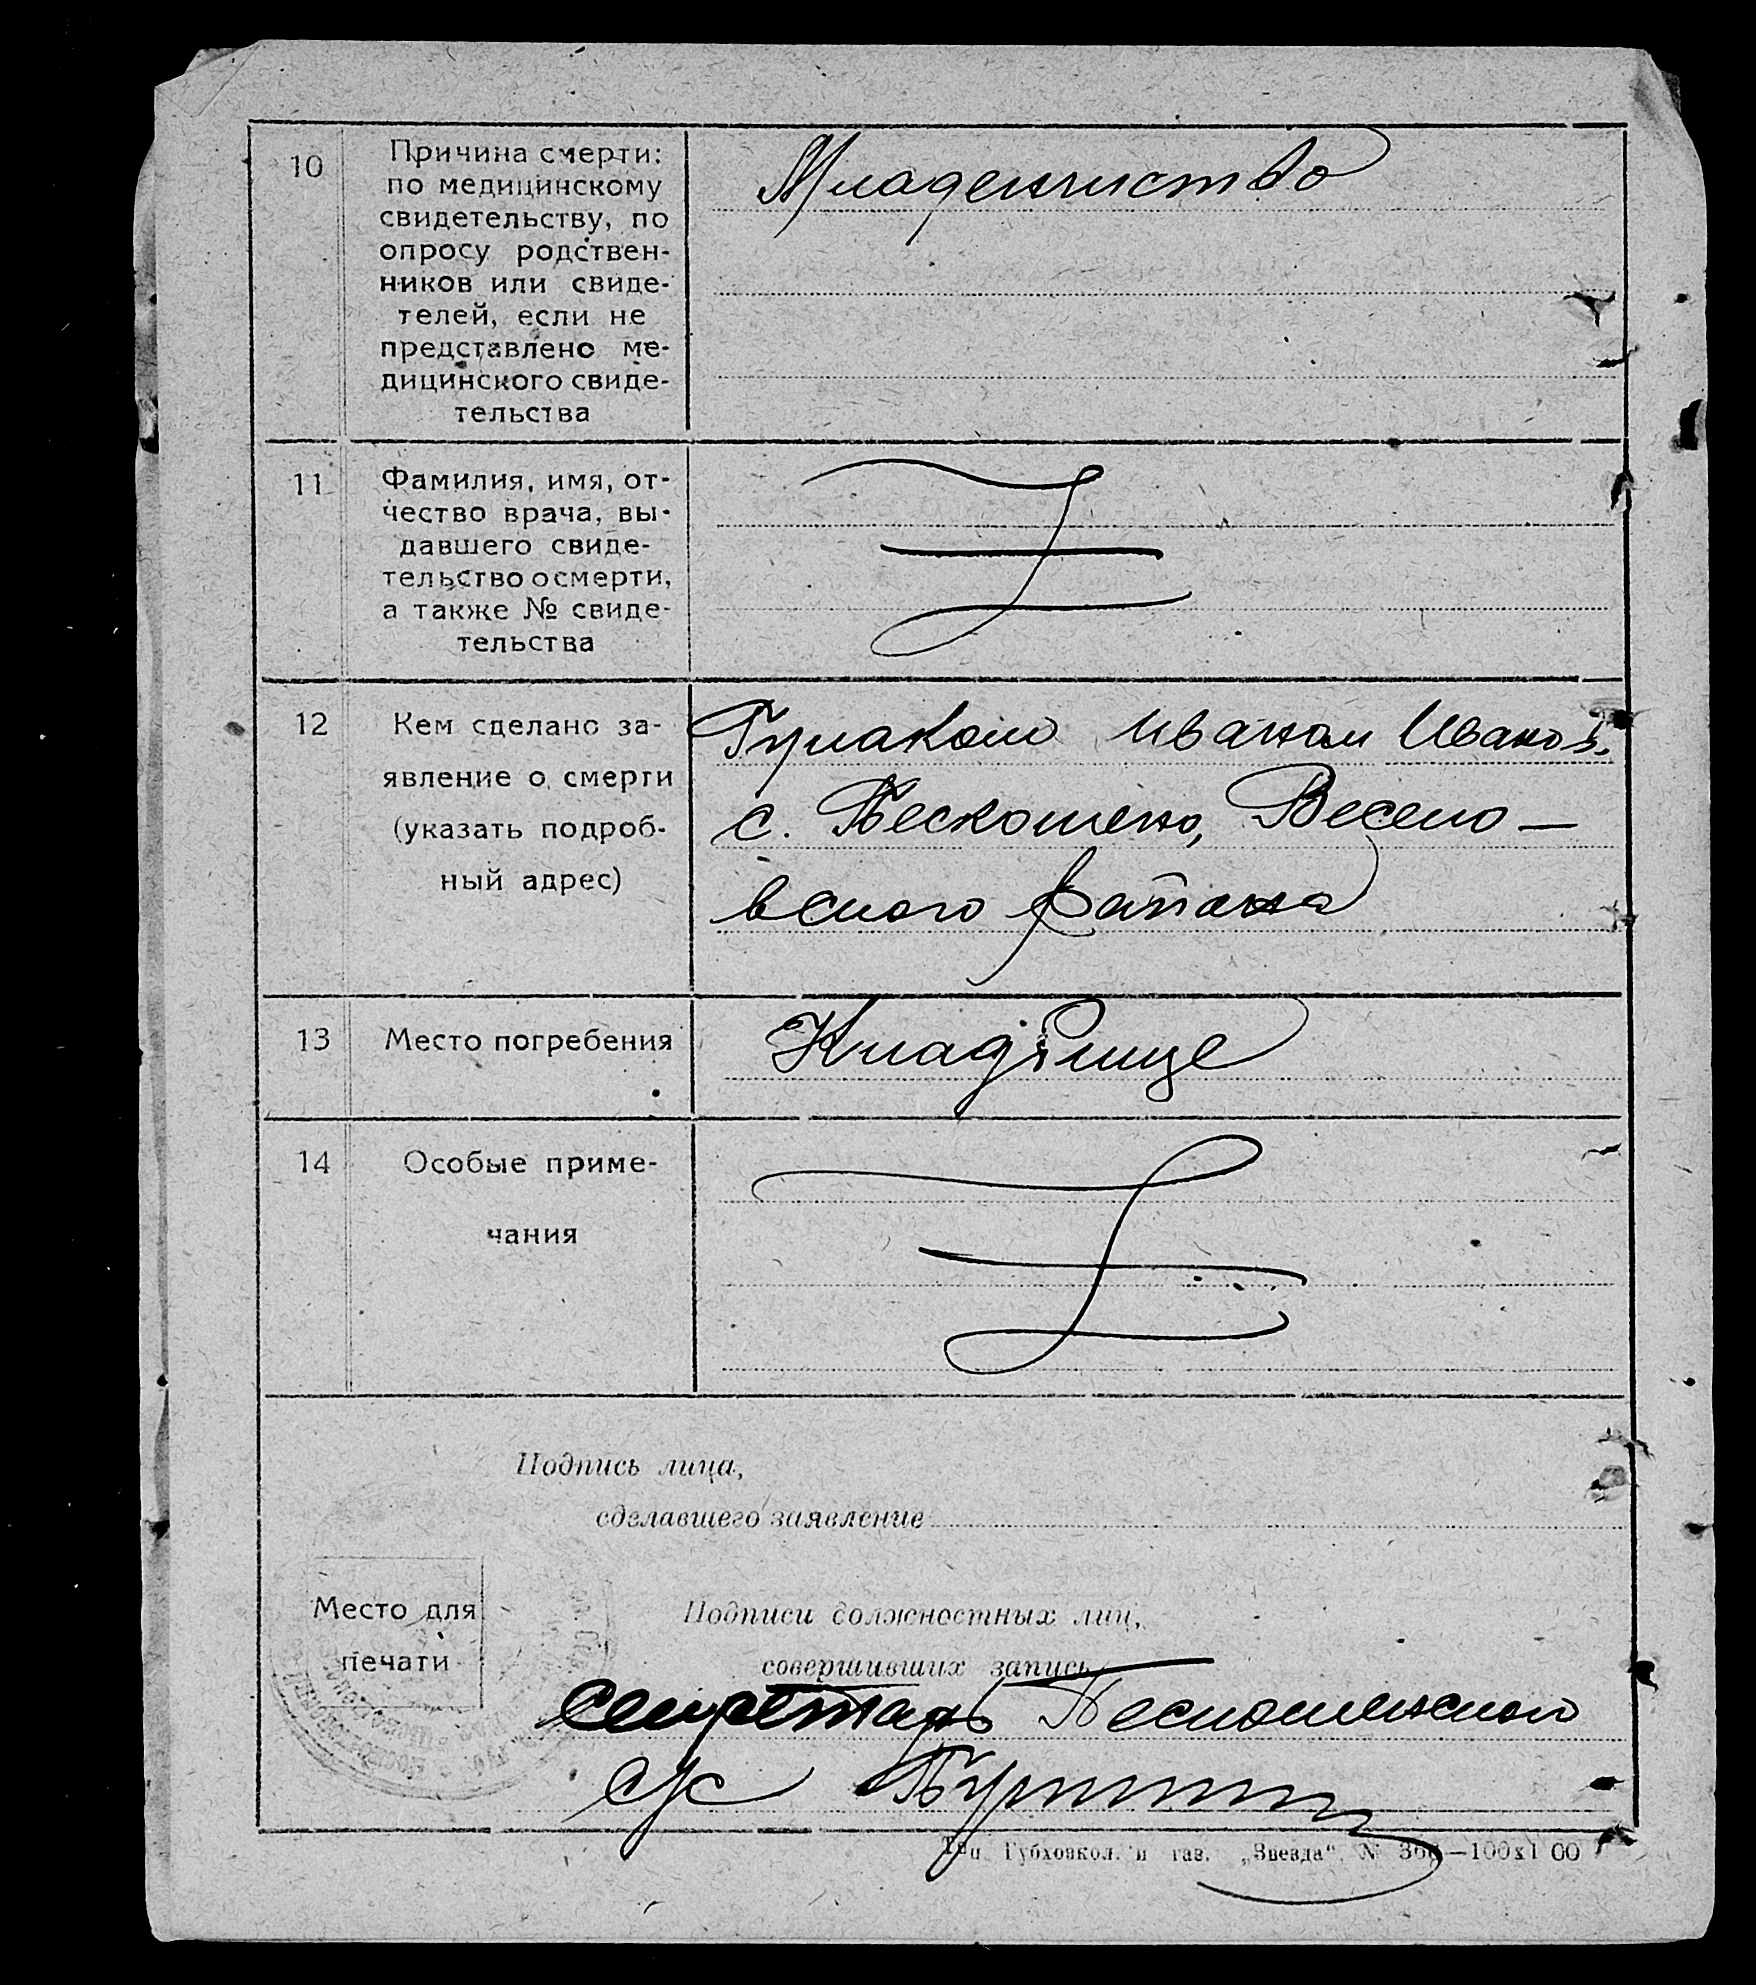 10
Причина смерти:
по медицинскому
свидетельству, по
опросу родствен-
ников или свиде-
телей, если не
представлено ме-
дицинского свиде-
тельства
Младенчество
11
Фамилия, имя, от-
чество врача, вы-
давшего свиде-
тельство о смерти,
а также № свиде-
тельства
12
Кем сделано за-
явление о смерти
(указать подроб-
ный адрес)
Иваном Иванов.
с. Пескошено, Весело-
вского района
13
Место погребения
Кладбище
14
Особые приме-
чания
Подпись лица,
сделавшего заявление
Место для
печати
Подписи должностных лиц,
совершивших запись
секретарь Пескошенского
с/с
Тип. Губховкол. и газ. „Звезда" №